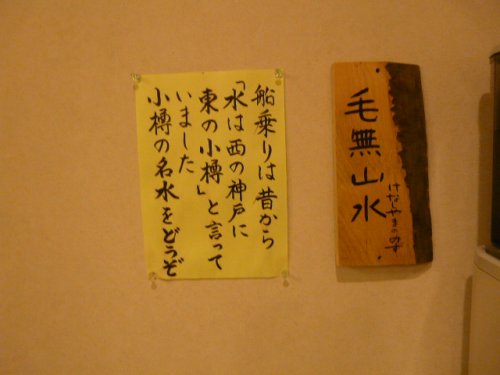 毛無山水
けなしやまの水
船乗りは昔から
「水は西の神戸に
東の小樽」と言って
いました
小樽の名水をどうぞ